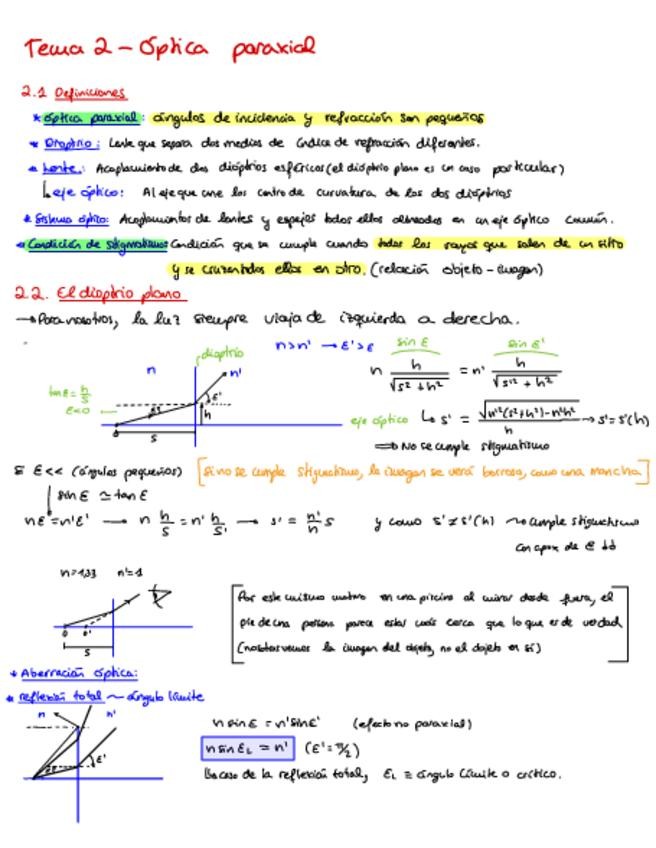 Tema 2 - Óptica paraxial
2.1 Definiciones
* Óptica paraxial: ángulos de incidencia y refracción son pequeños
* Dioptrio: Lente que separa dos medios de índice de refracción diferentes.
* Lente: Acoplamiento de dos dioptrios esféricos (el dioptrio plano es un caso particular)
↳ eje óptico: Al eje que une los centro de curvatura de los dos dioptrios
* Sistema óptico: Acoplamientos de lentes y espejos todos ellos alineados en un eje óptico común.
* Condición de stigmatismo: Condición que se cumple cuando todos los rayos que salen de un sitio
y se cruzan todos ellos en otro. (relación objeto - imagen)
2.2. El dioptrio plano
→ Para nosotros, la luz siempre viaja de izquierda a derecha.
dioptrio n > n' → ε' > ε sin ε sin ε'
n n' n h/√(s² + h²) = n' h/√(s'² + h²)
tan ε = h/s
ε < 0 ε ε' h
s eje óptico ↳ s' = √(n'²(s²+h²) - n²h²)/n → s' = s'(h)
⇒ No se cumple stigmatismo
Si ε << (ángulos pequeños) [Si no se cumple stigmatismo, la imagen se verá borrosa, como una mancha]
sin ε ≃ tan ε
nε = n'ε' → n h/s = n' h/s' → s' = n'/n s y como s' ≠ s'(h) → cumple stigmatismo
con aprox de ε ↓↓
n = 1,33 n' = 1
o o'
s
[Por este mismo motivo en una piscina al mirar desde fuera, el
pie de una persona parece estar más cerca que lo que es de verdad
(nosotros vemos la imagen del objeto, no el objeto en sí)]
* Aberración óptica:
* reflexión total ~ ángulo límite
n n' ε ε'
n sin ε = n' sin ε' (efecto no paraxial)
n sin ε_L = n' (ε' = π/2)
Es caso de la reflexión total, ε_L ≡ ángulo límite o crítico.